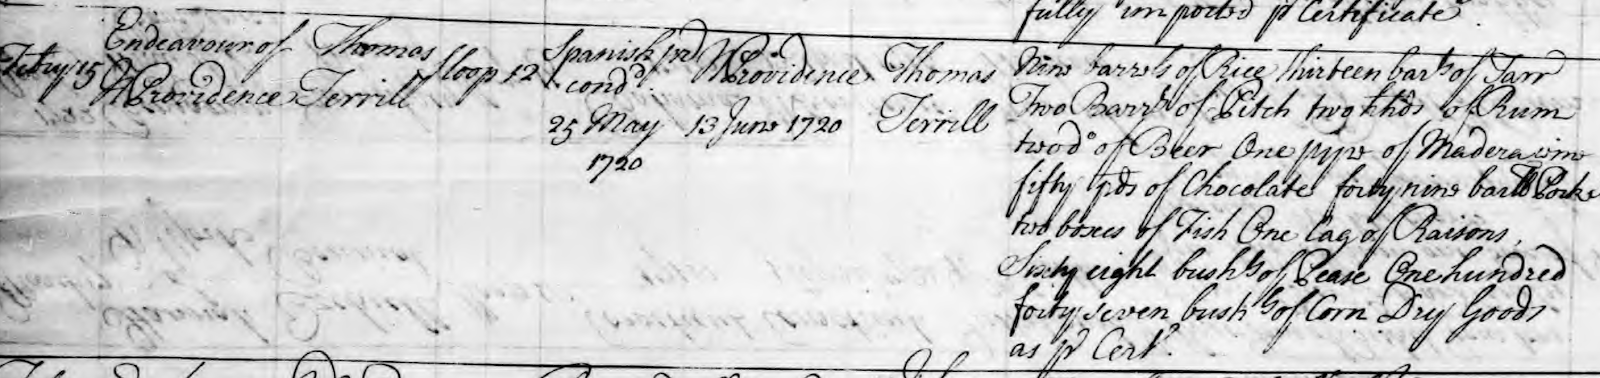 fully imported pr Certificate
Febry 15 Endeavour of Thomas Sloop 12 Spanish pr N Providence Thomas Nine barrels of Rice Thirteen barls of Tarr
N Providence Terrill condd 13 June 1720 Terrill Two Barrls of Pitch two hhds of Rum
25 May two do of Beer One pype of Madera wine
1720 fifty pds of Chocolate forty nine barlls Porke
two boxes of Fish One Cag of Raisons,
Sixty eight bushls of Pease One hundred
forty seven bushls of Corn Dry Goods
as pr Cert.